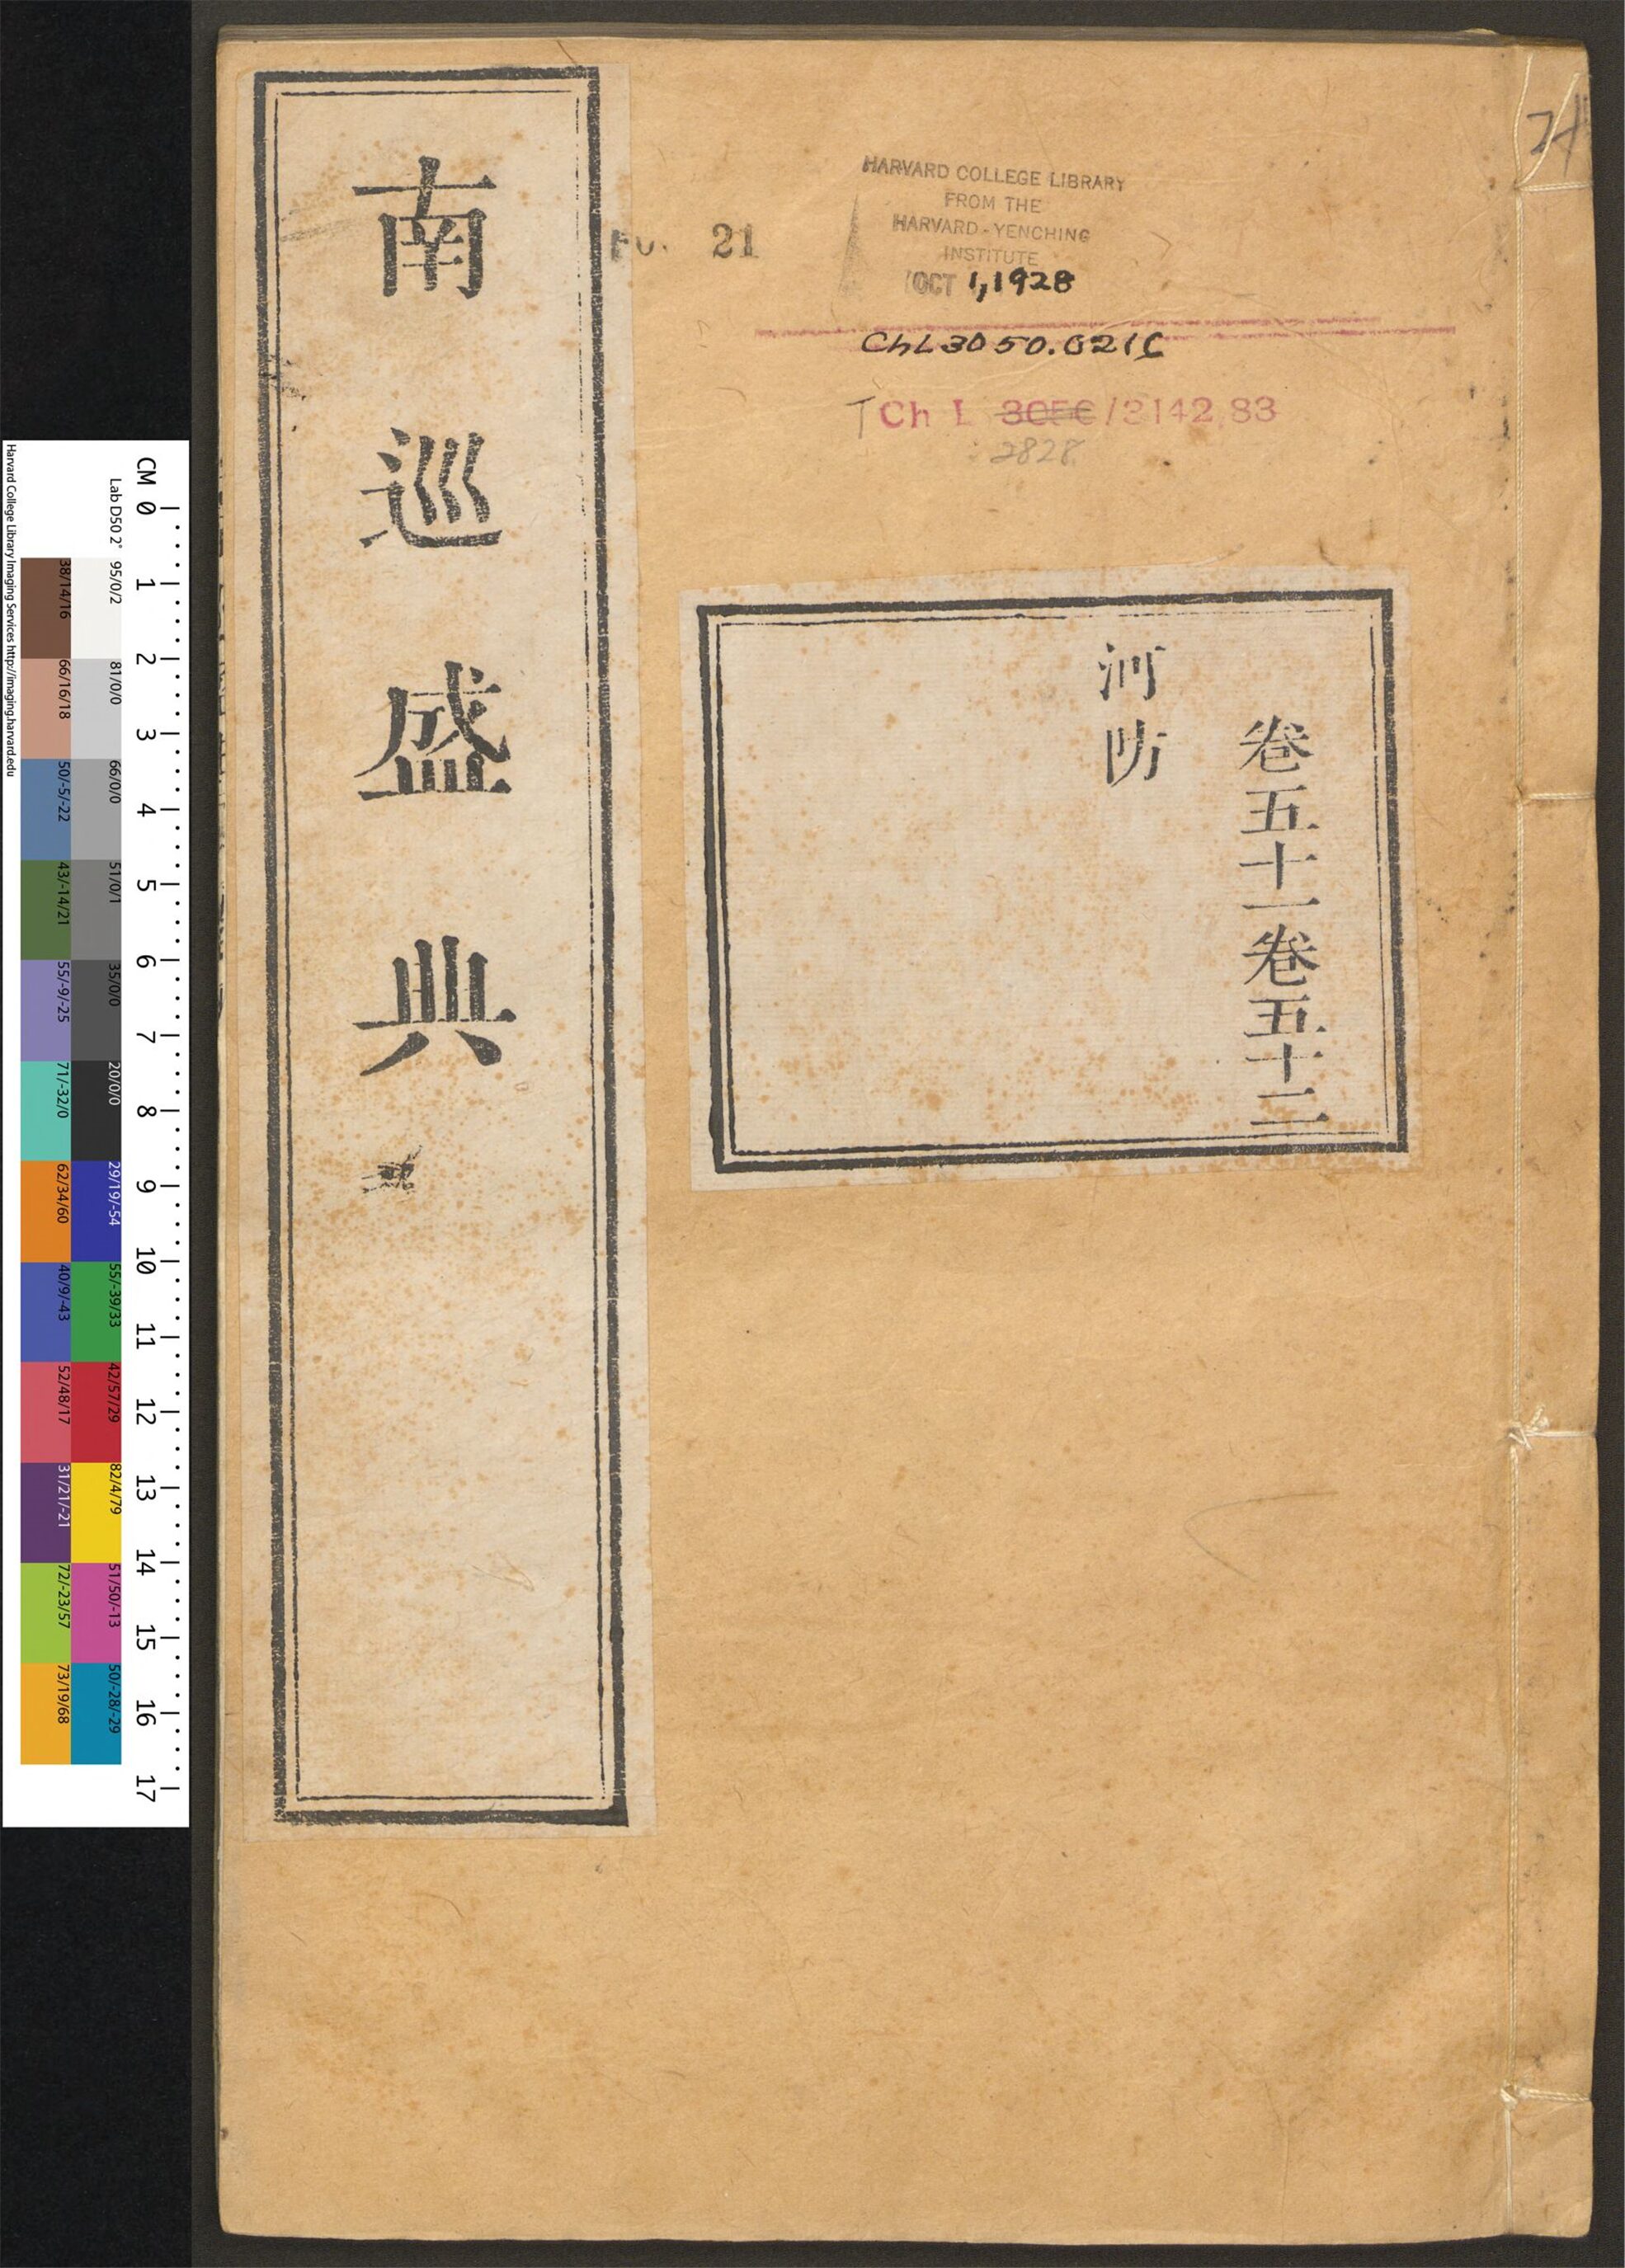 南巡盛典
21
HARVARD COLLEGE LIBRARY
FROM THE
HARVARD-YENCHING
INSTITUTE
OCT 1, 1928
ChL 3050.021C
T Ch L /3142.83
2828
卷五十一卷五十二
河防
CM 0 1 2 3 4 5 6 7 8 9 10 11 12 13 14 15 16 17
Lab D50 2°
95/0/2 81/0/0 66/0/0 51/0/1 35/0/0 20/0/0 29/19/-54 55/-39/33 42/57/29 82/4/79 51/50/-13 50/-28/-29
38/14/16 66/16/18 50/-5/-22 43/-14/21 55/-9/-25 71/-32/0 62/34/60 40/9/-43 52/48/17 31/21/-21 72/-23/57 73/19/68
Harvard College Library Imaging Services http://imaging.harvard.edu